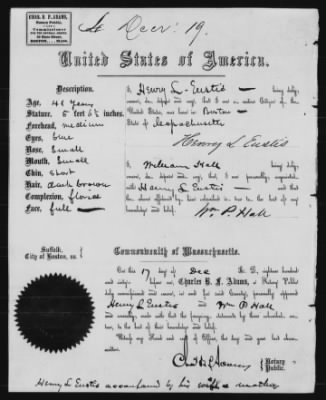 CHAS. B. F. ADAMS,
Notary Public.
Commissioner
BOSTON, MASS.
19.
United States of America.
Description.
I, Henry L. Eustis — being duly
sworn, do depose and say, that I am a native Citizen of the
Age, 41 Years
United States, was born in Boston —
Stature, 5 feet 6½ inches.
State of Massachusetts
Forehead, medium
Eyes, blue
Henry L Eustis
Nose, Small
Mouth, Small
I, William Hall being duly
Chin, Short
sworn, do depose and say, that I am personally acquainted
Hair, dark brown
with Henry L. Eustis — and that
Complexion, florid
the above affidavit by him subscribed is true to the best of my
Face, full —
knowledge and belief.
Wm P. Hall
Suffolk,
City of Boston, ss.
Commonwealth of Massachusetts.
On this 17 day of Dec A. D., eighteen hundred
before me, Charles B. F. Adams, a Notary Public
duly commissioned and sworn, in and for said County, personally appeared
Henry L Eustis and Wm P Hall
and severally made oath that the foregoing statements by them subscribed are
true, to the best of their knowledge and belief.
Witness my Hand and Seal of Office, the day and year last above
written.
Notary
Public.
Henry L Eustis accompanied by his mother